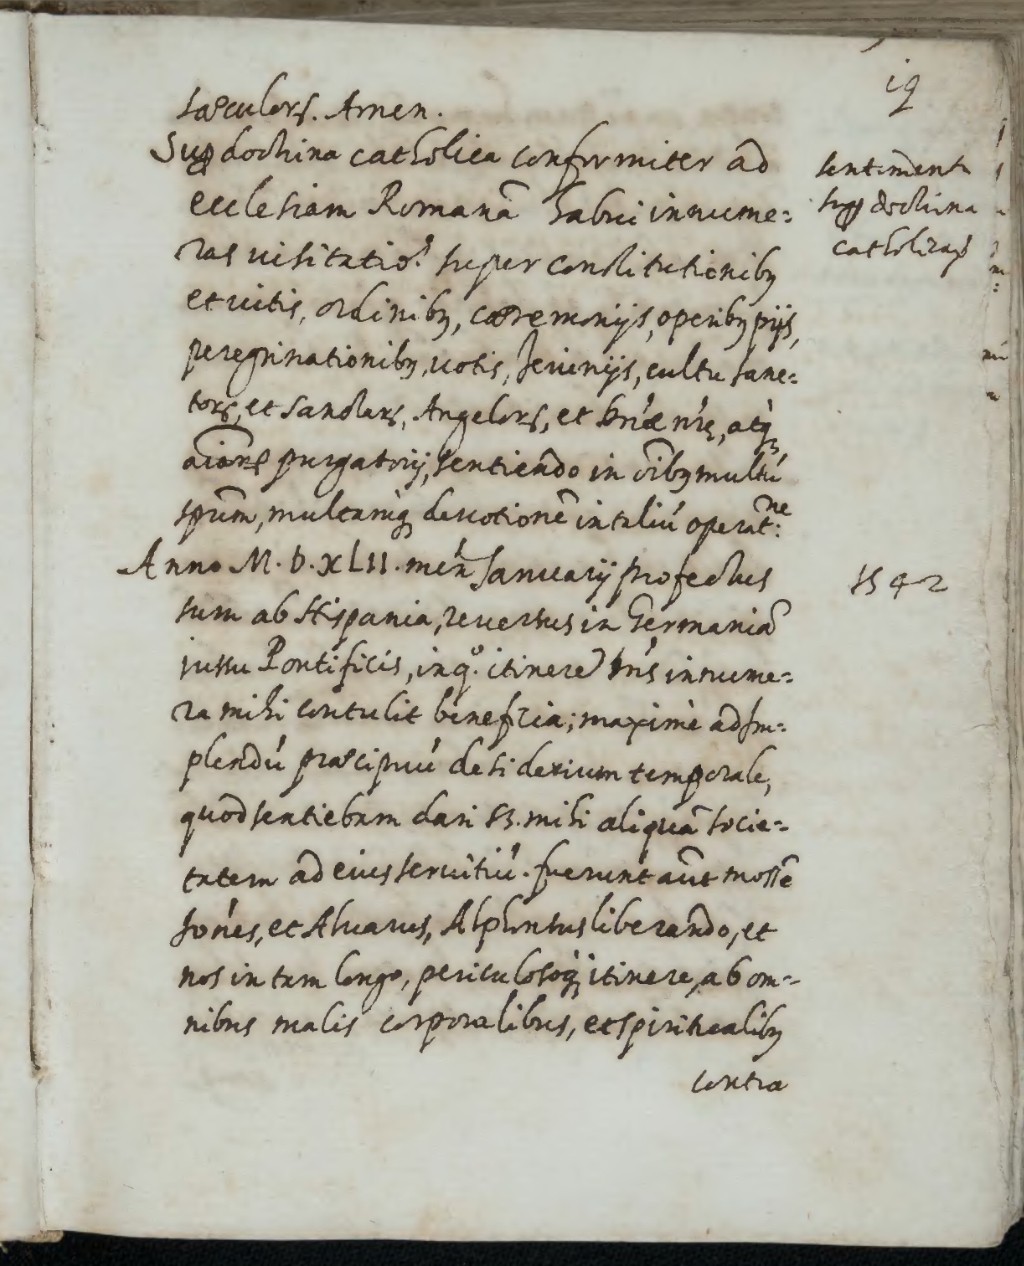 19
sæculorꝝ. Amen.
Sup doctrina catholica conformiter ad
ecclesiam Romanā habui innume=
ras visitatio.ˢ super constitutionibꝫ
et vitis, ordinibꝫ, cæremonijs, operibꝫ pijs,
peregrinationibꝫ, votis, Jeiunijs, cultu sanc=
torꝝ, et sanctarꝝ, Angelorꝝ, et bṫæ nr̄ę, atqꝫ
aīarꝝ purgatorij, sentiendo in oībꝫ multū
spūm, multamqꝫ devotionē in taliū operat:ⁿᵉ
Anno M.D.XLII. men̄ Januarij profectus
sum ab Hispania, reversus in Germaniā
jussu Pontificis, in q.º itinere Dn̄s innume=
ra mihi contulit beneficia; maximè ad Im=
plendū præcipuū desiderium temporale,
quod sentiebam dari mihi aliquā socie=
tatem ad eius servitiū. fuerunt aūt mossē
Joñes, et Alvarus, Alphonsus liberando, et
nos in tam longo, periculosoqꝫ itinere, ab om=
nibus malis corporalibus, et spiritualibꝫ
contra
sentiment
sup doctrina
catholica
1542